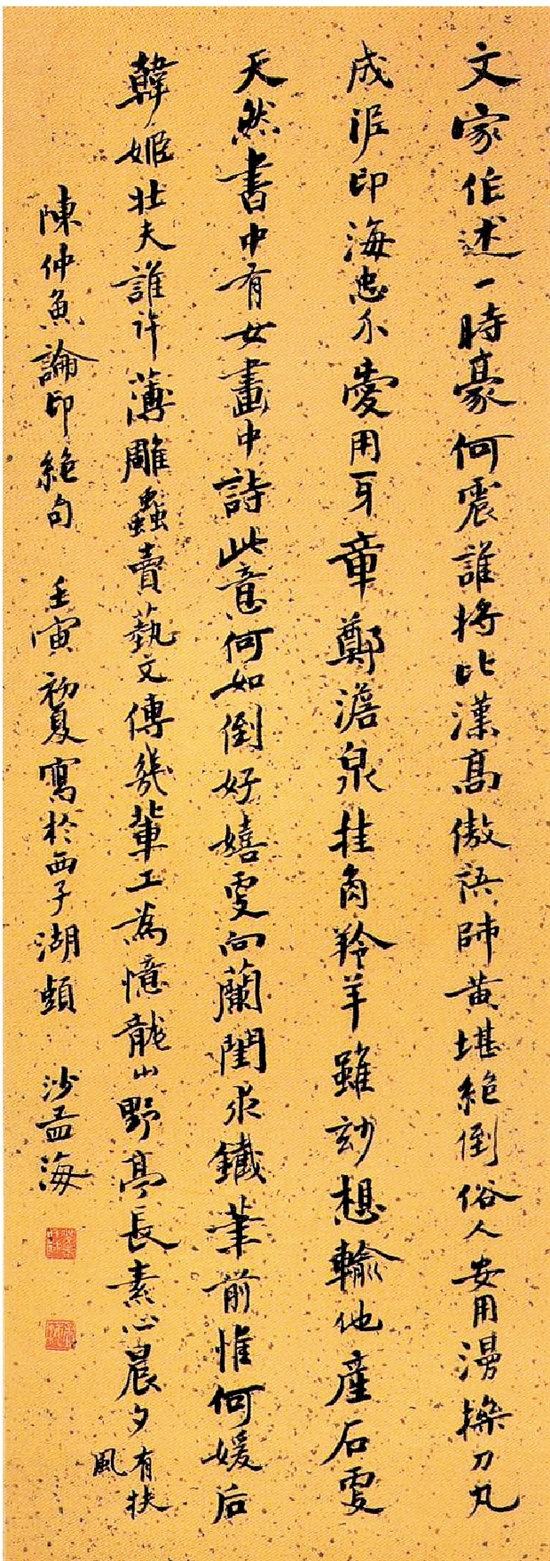 文家作述一時豪何震誰將比漢高傲語師黃堪絕倒俗人安用漫操刀丸
成泥印海忠介愛用牙章鄭澹泉挂角羚羊雖玅想輸他產石更
天然書中有女畫中詩此意何如倒好嬉更向蘭閨求鐵筆前惟何媛后
韓姬壯夫誰許薄雕蟲賣藝文傳幾輩工為憶龍山野亭長素心晨夕有扶風
陳仲魚論印絕句 壬寅初夏寫於西子湖頭 沙孟海